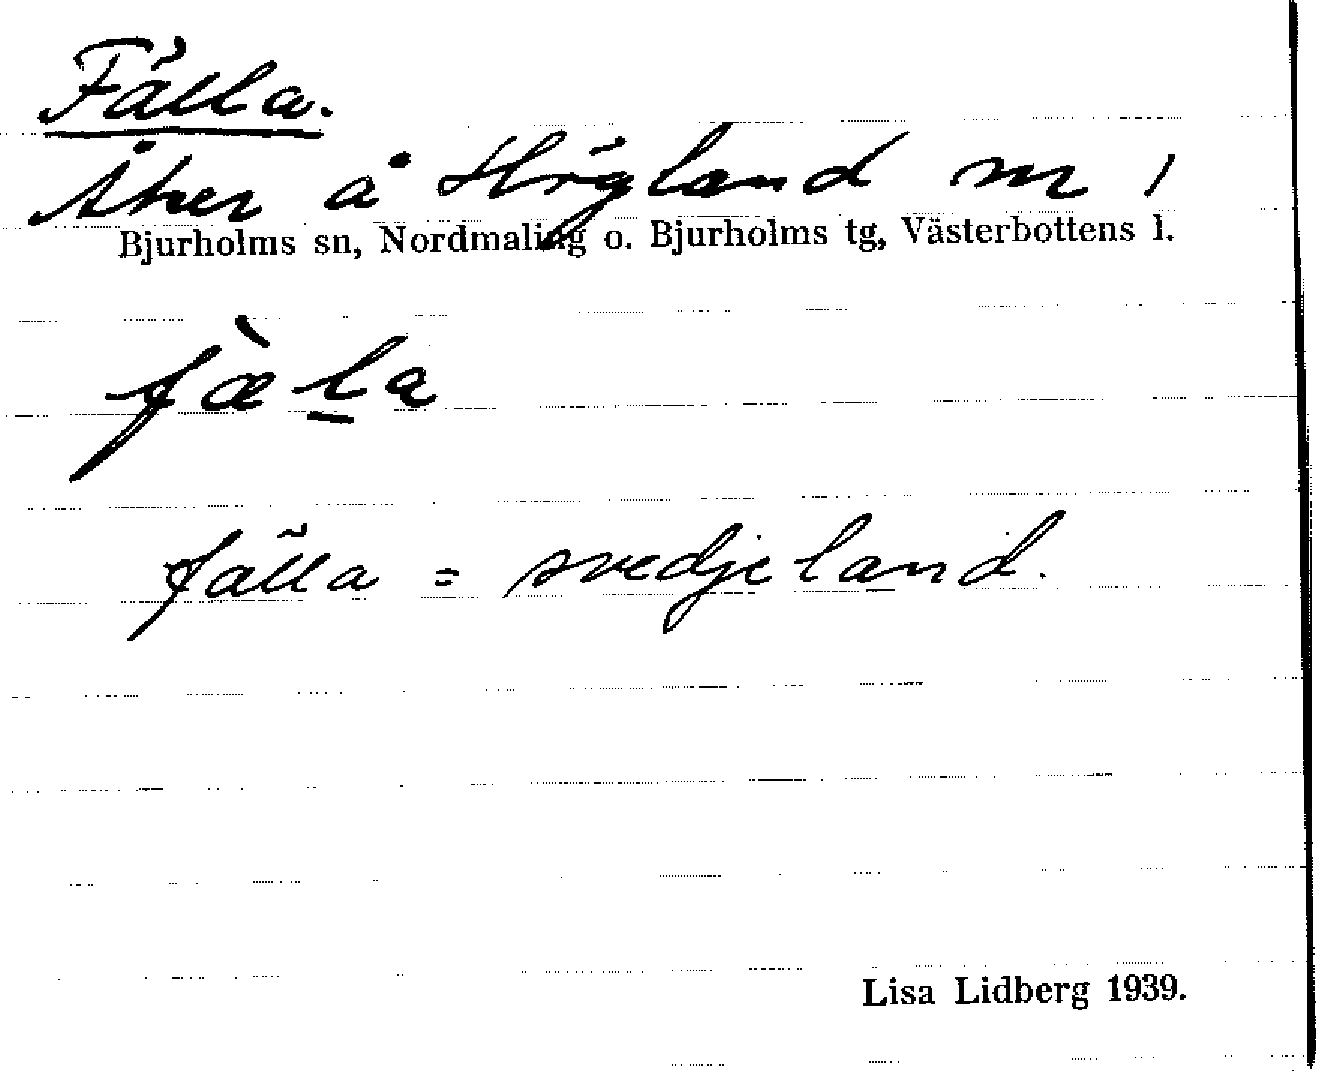 Fälla.
Åker å Högland nr 1
Bjurholms sn, Nordmaling o. Bjurholms tg, Västerbottens l.
fæ̀l̠a
fälla = svedjeland.
Lisa Lidberg 1939.